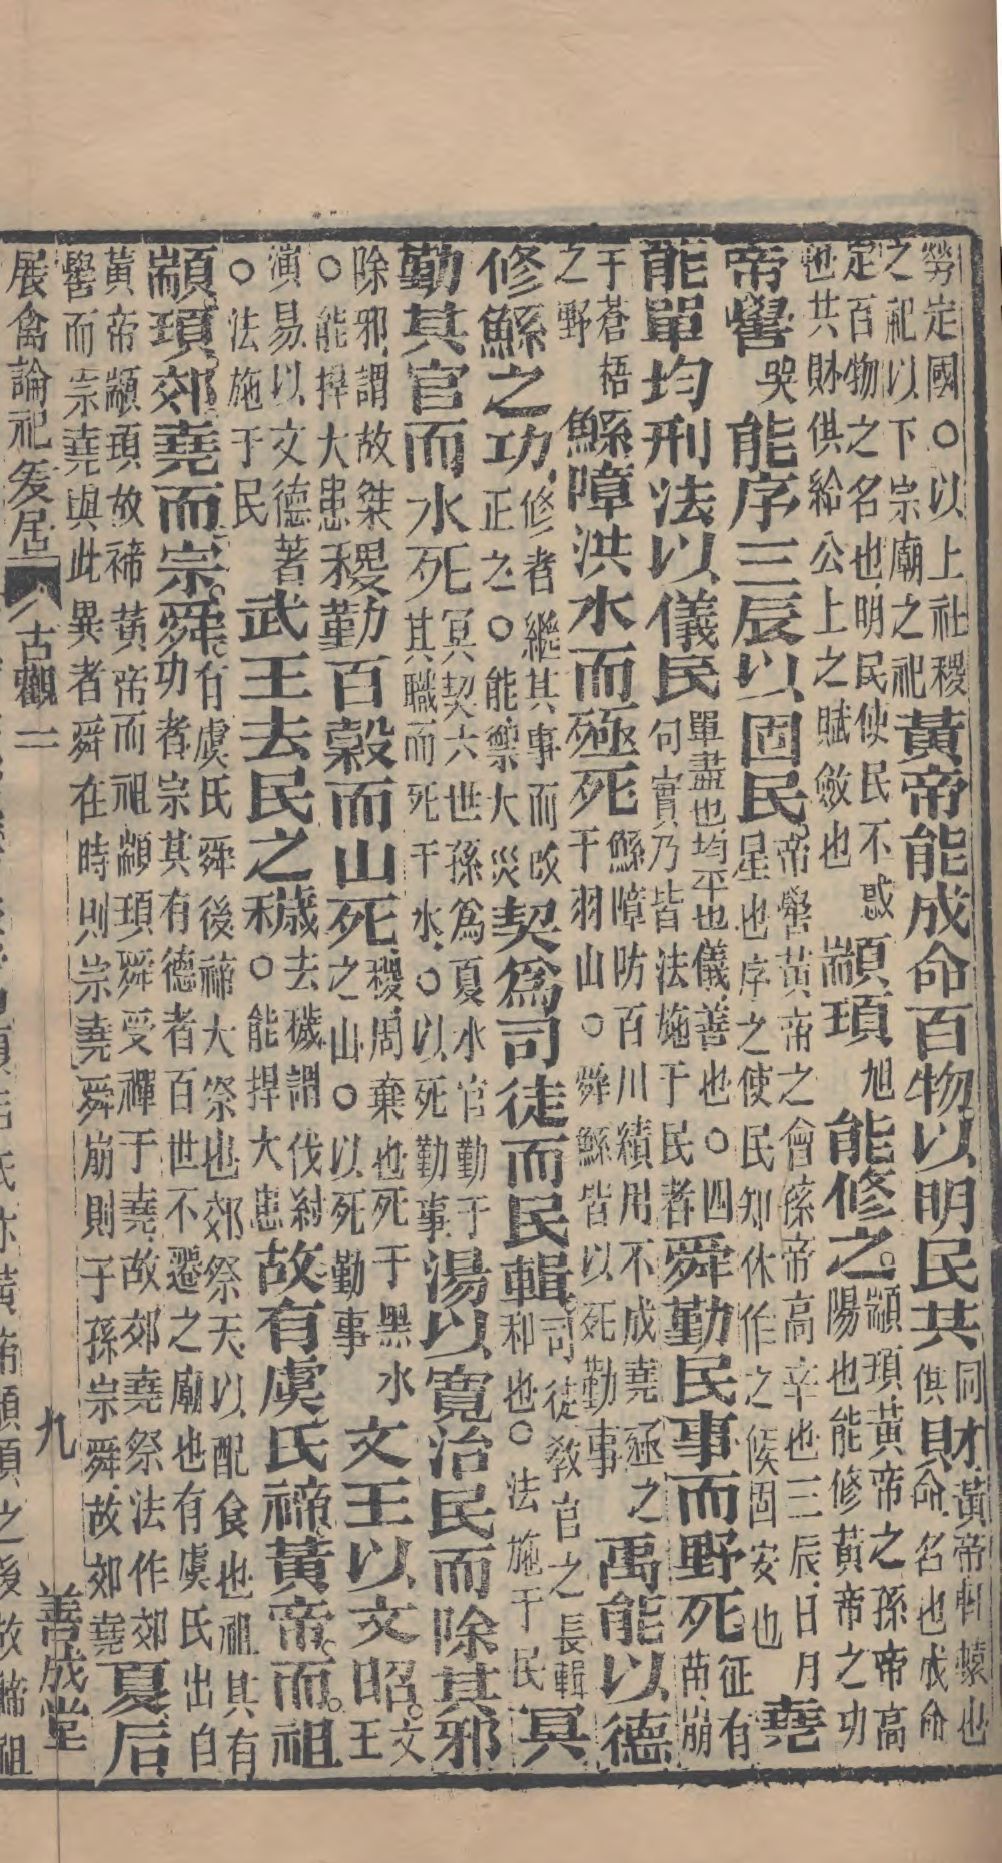 勞定國○以上社稷之祀以下宗廟之祀黃帝能成命百物以明民共同供財黃帝軒轅也命名也成命
定百物之名也明民使民不惑也共財供給公上之賦斂也顓頊旭能修之顓頊黃帝之孫帝高陽也能修黃帝之功
帝嚳哭能序三辰以固民帝嚳黃帝之曾孫帝高辛也三辰日月星也序之使民知休作之候固安也堯
能單均刑法以儀民單盡也均平也儀善也○四句實乃皆法施于民者舜勤民事而野死征有苗崩
于蒼梧之野鯀障洪水而殛死鯀障防百川績用不成堯殛之于羽山○舜鯀皆以死勤事禹能以德
修鯀之功修者繼其事而改正之○能禦大災契爲司徒而民輯司徒敎官之長輯和也○法施于民冥
勤其官而水死冥契六世孫爲夏水官勤于其職而死于水○以死勤事湯以寬治民而除其邪
除邪謂放桀○能捍大患稷勤百穀而山死稷周棄也死于黑水之山○以死勤事文王以文昭文王
演易以文德著○法施于民武王去民之穢去穢謂伐紂○能捍大患故有虞氏禘黃帝而祖
顓頊郊堯而宗舜有虞氏舜後禘大祭也郊祭天以配食也祖其有功者宗其有德者百世不遷之廟也有虞氏出自
黃帝顓頊故禘黃帝而祖顓頊舜受禪于堯故郊堯祭法作郊嚳而宗堯與此異者舜在時則宗堯舜崩則子孫宗舜故郊堯夏后
展禽論祀爰居 古觀二 九 善成堂